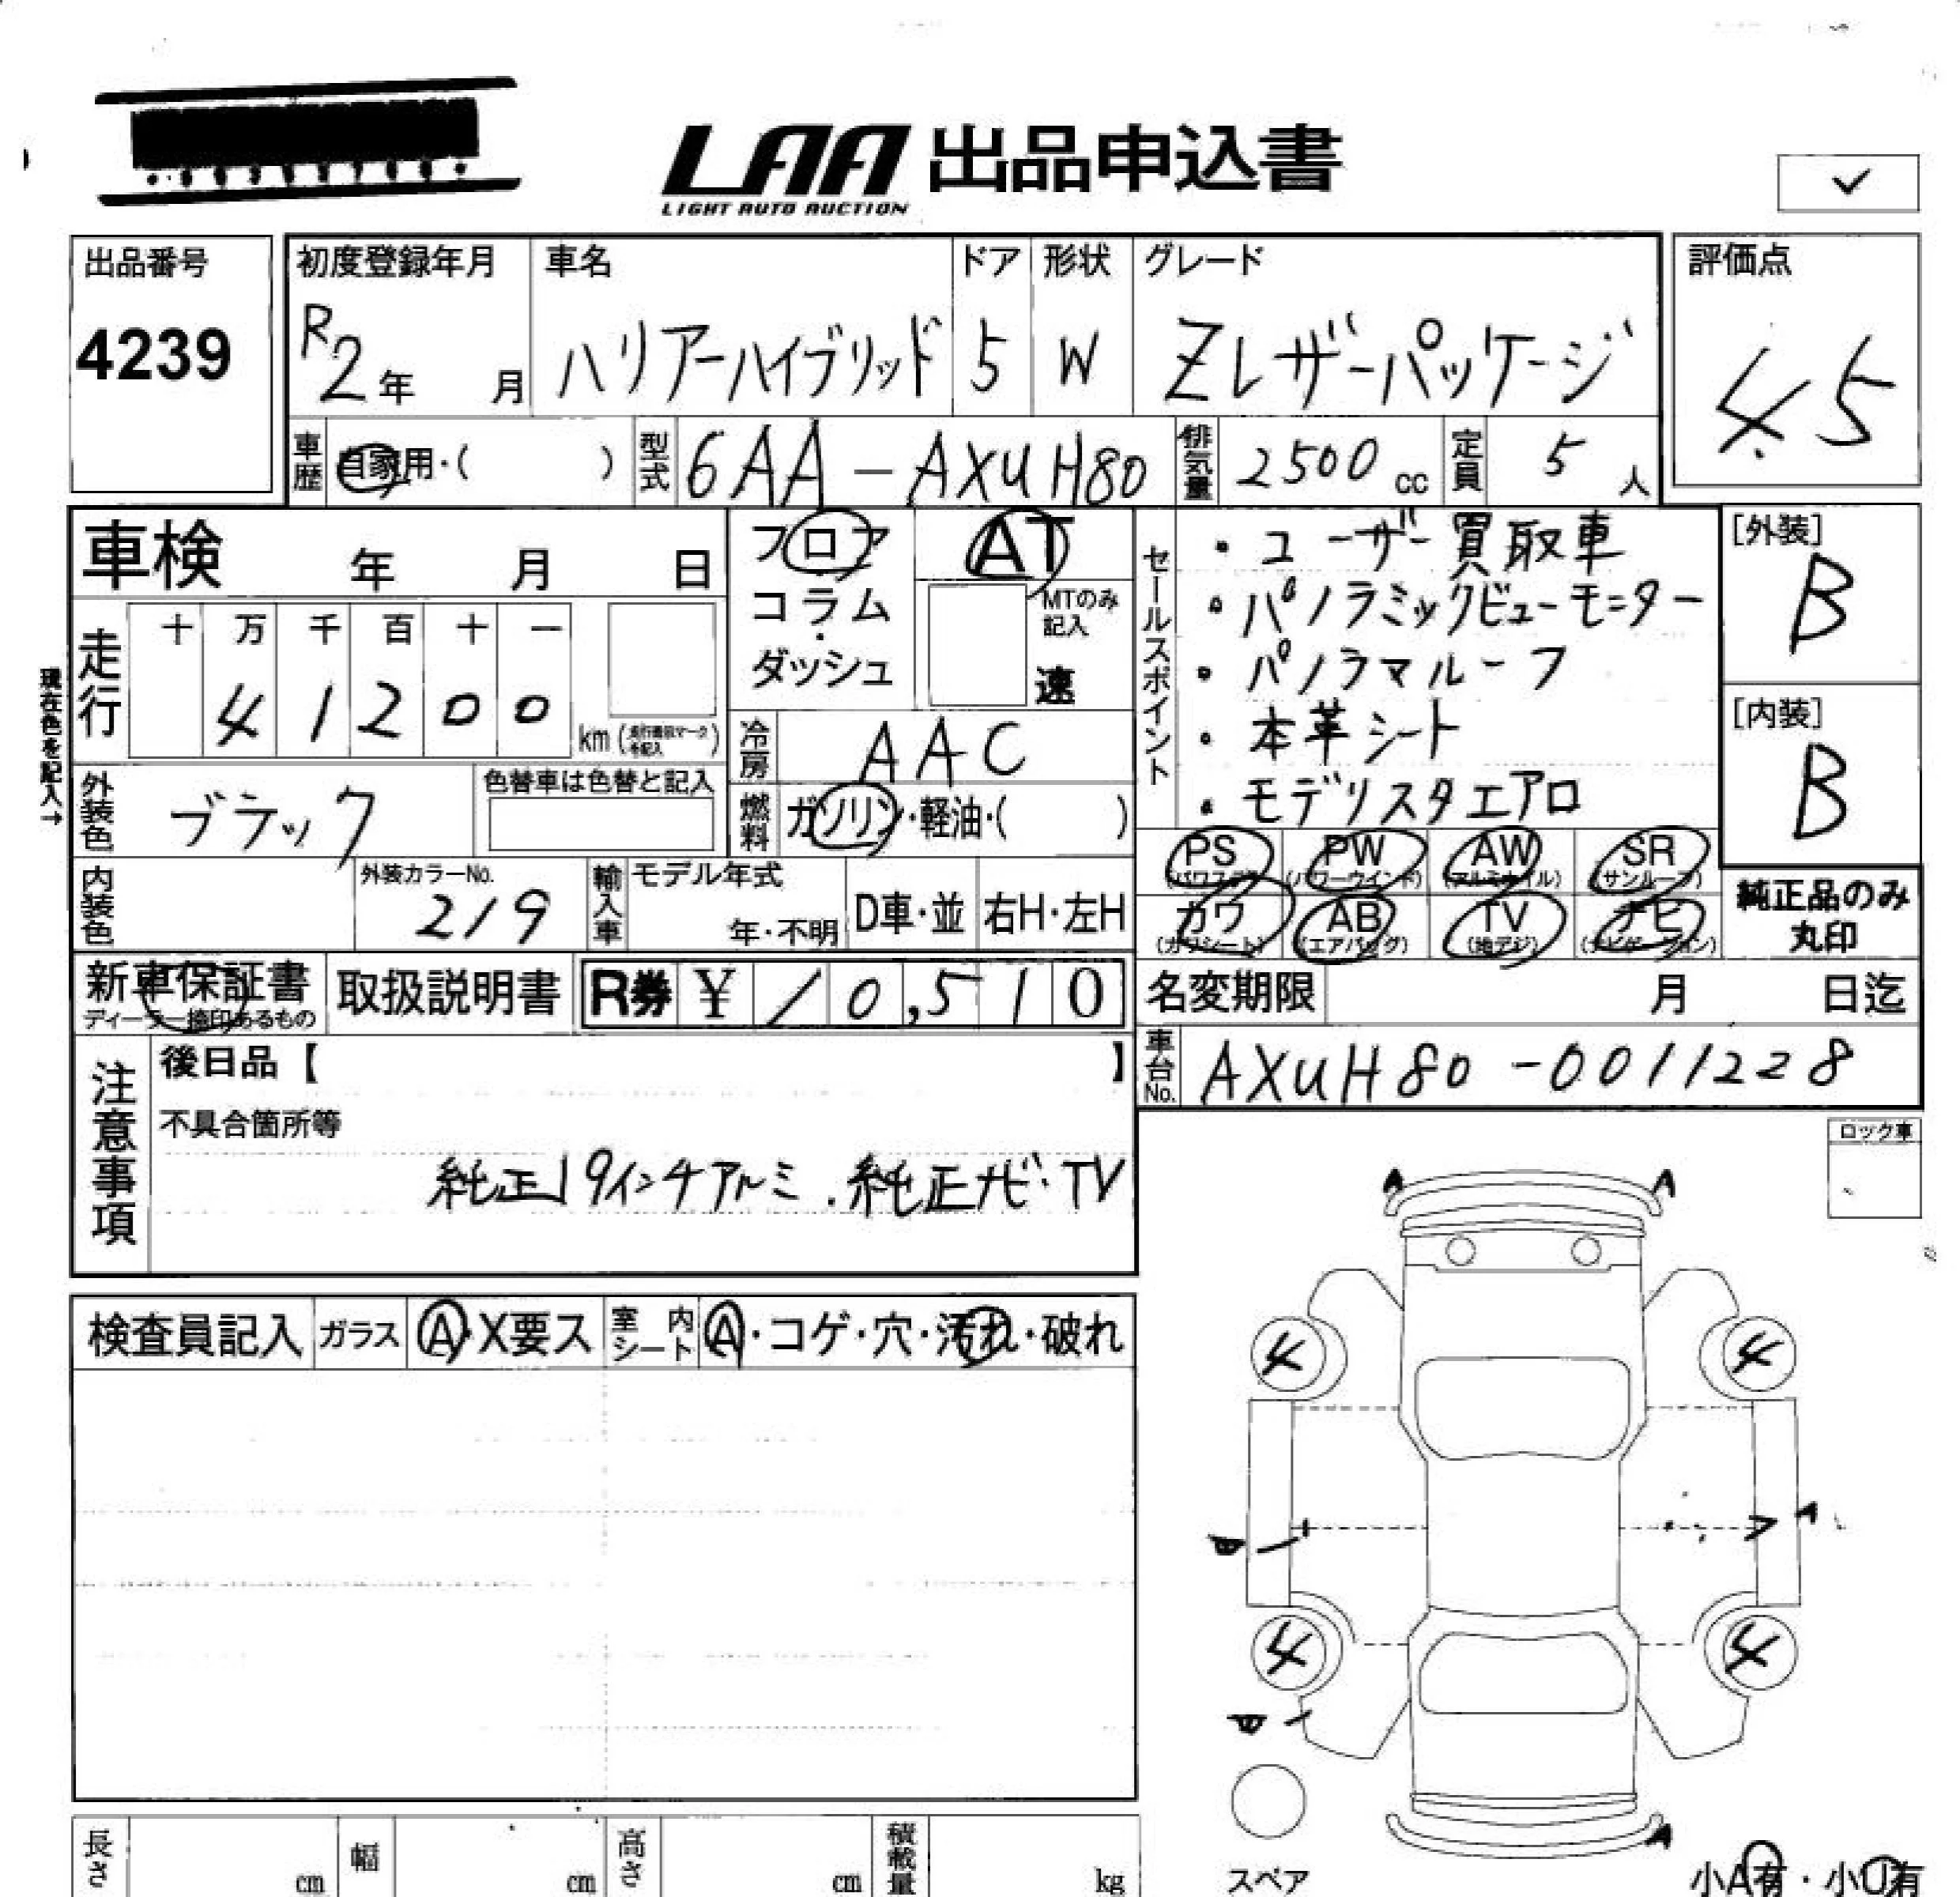 LAA 出品申込書
LIGHT AUTO AUCTION
出品番号
4239
初度登録年月
R2年 月
車名
ハリアーハイブリッド
ドア
5
形状
W
グレード
Zレザーパッケージ
評価点
4.5
車歴 自家用・( )
型式 6AA-AXUH80
排気量 2500 cc
定員 5 人
車検 年 月 日
フロア
コラム
・
ダッシュ
AT
MTのみ
記入
速
セールスポイント
・ユーザー買取車
・パノラミックビューモニター
・パノラマルーフ
・本革シート
・モデリスタエアロ
[外装]
B
[内装]
B
現在色を記入→
走行
十 万 千 百 十 一
4 1 2 0 0
km (走行距離マークを記入)
冷房 AAC
外装色 ブラック
色替車は色替と記入
燃料 ガソリン・軽油・( )
内装色
外装カラーNo.
219
輸入車
モデル年式
年・不明
D車・並
右H・左H
PS (パワステ)
PW (パワーウインド)
AW (アルミホイル)
SR (サンルーフ)
カワ (カワシート)
AB (エアバッグ)
TV (地デジ)
ナビ (ナビゲーション)
純正品のみ
丸印
新車保証書
ディーラー捺印あるもの
取扱説明書
R券 ¥10,510
名変期限 月 日迄
車台No. AXUH80-0011228
注意事項
後日品【 】
不具合箇所等
純正19インチアルミ.純正ナビ・TV
ロック車
検査員記入
ガラス
A・X要ス
室内シート
A・コゲ・穴・汚れ・破れ
A A
4 4
A
4 4
A
スペア
小A有・小U有
長さ cm
幅 cm
高さ cm
積載量 kg